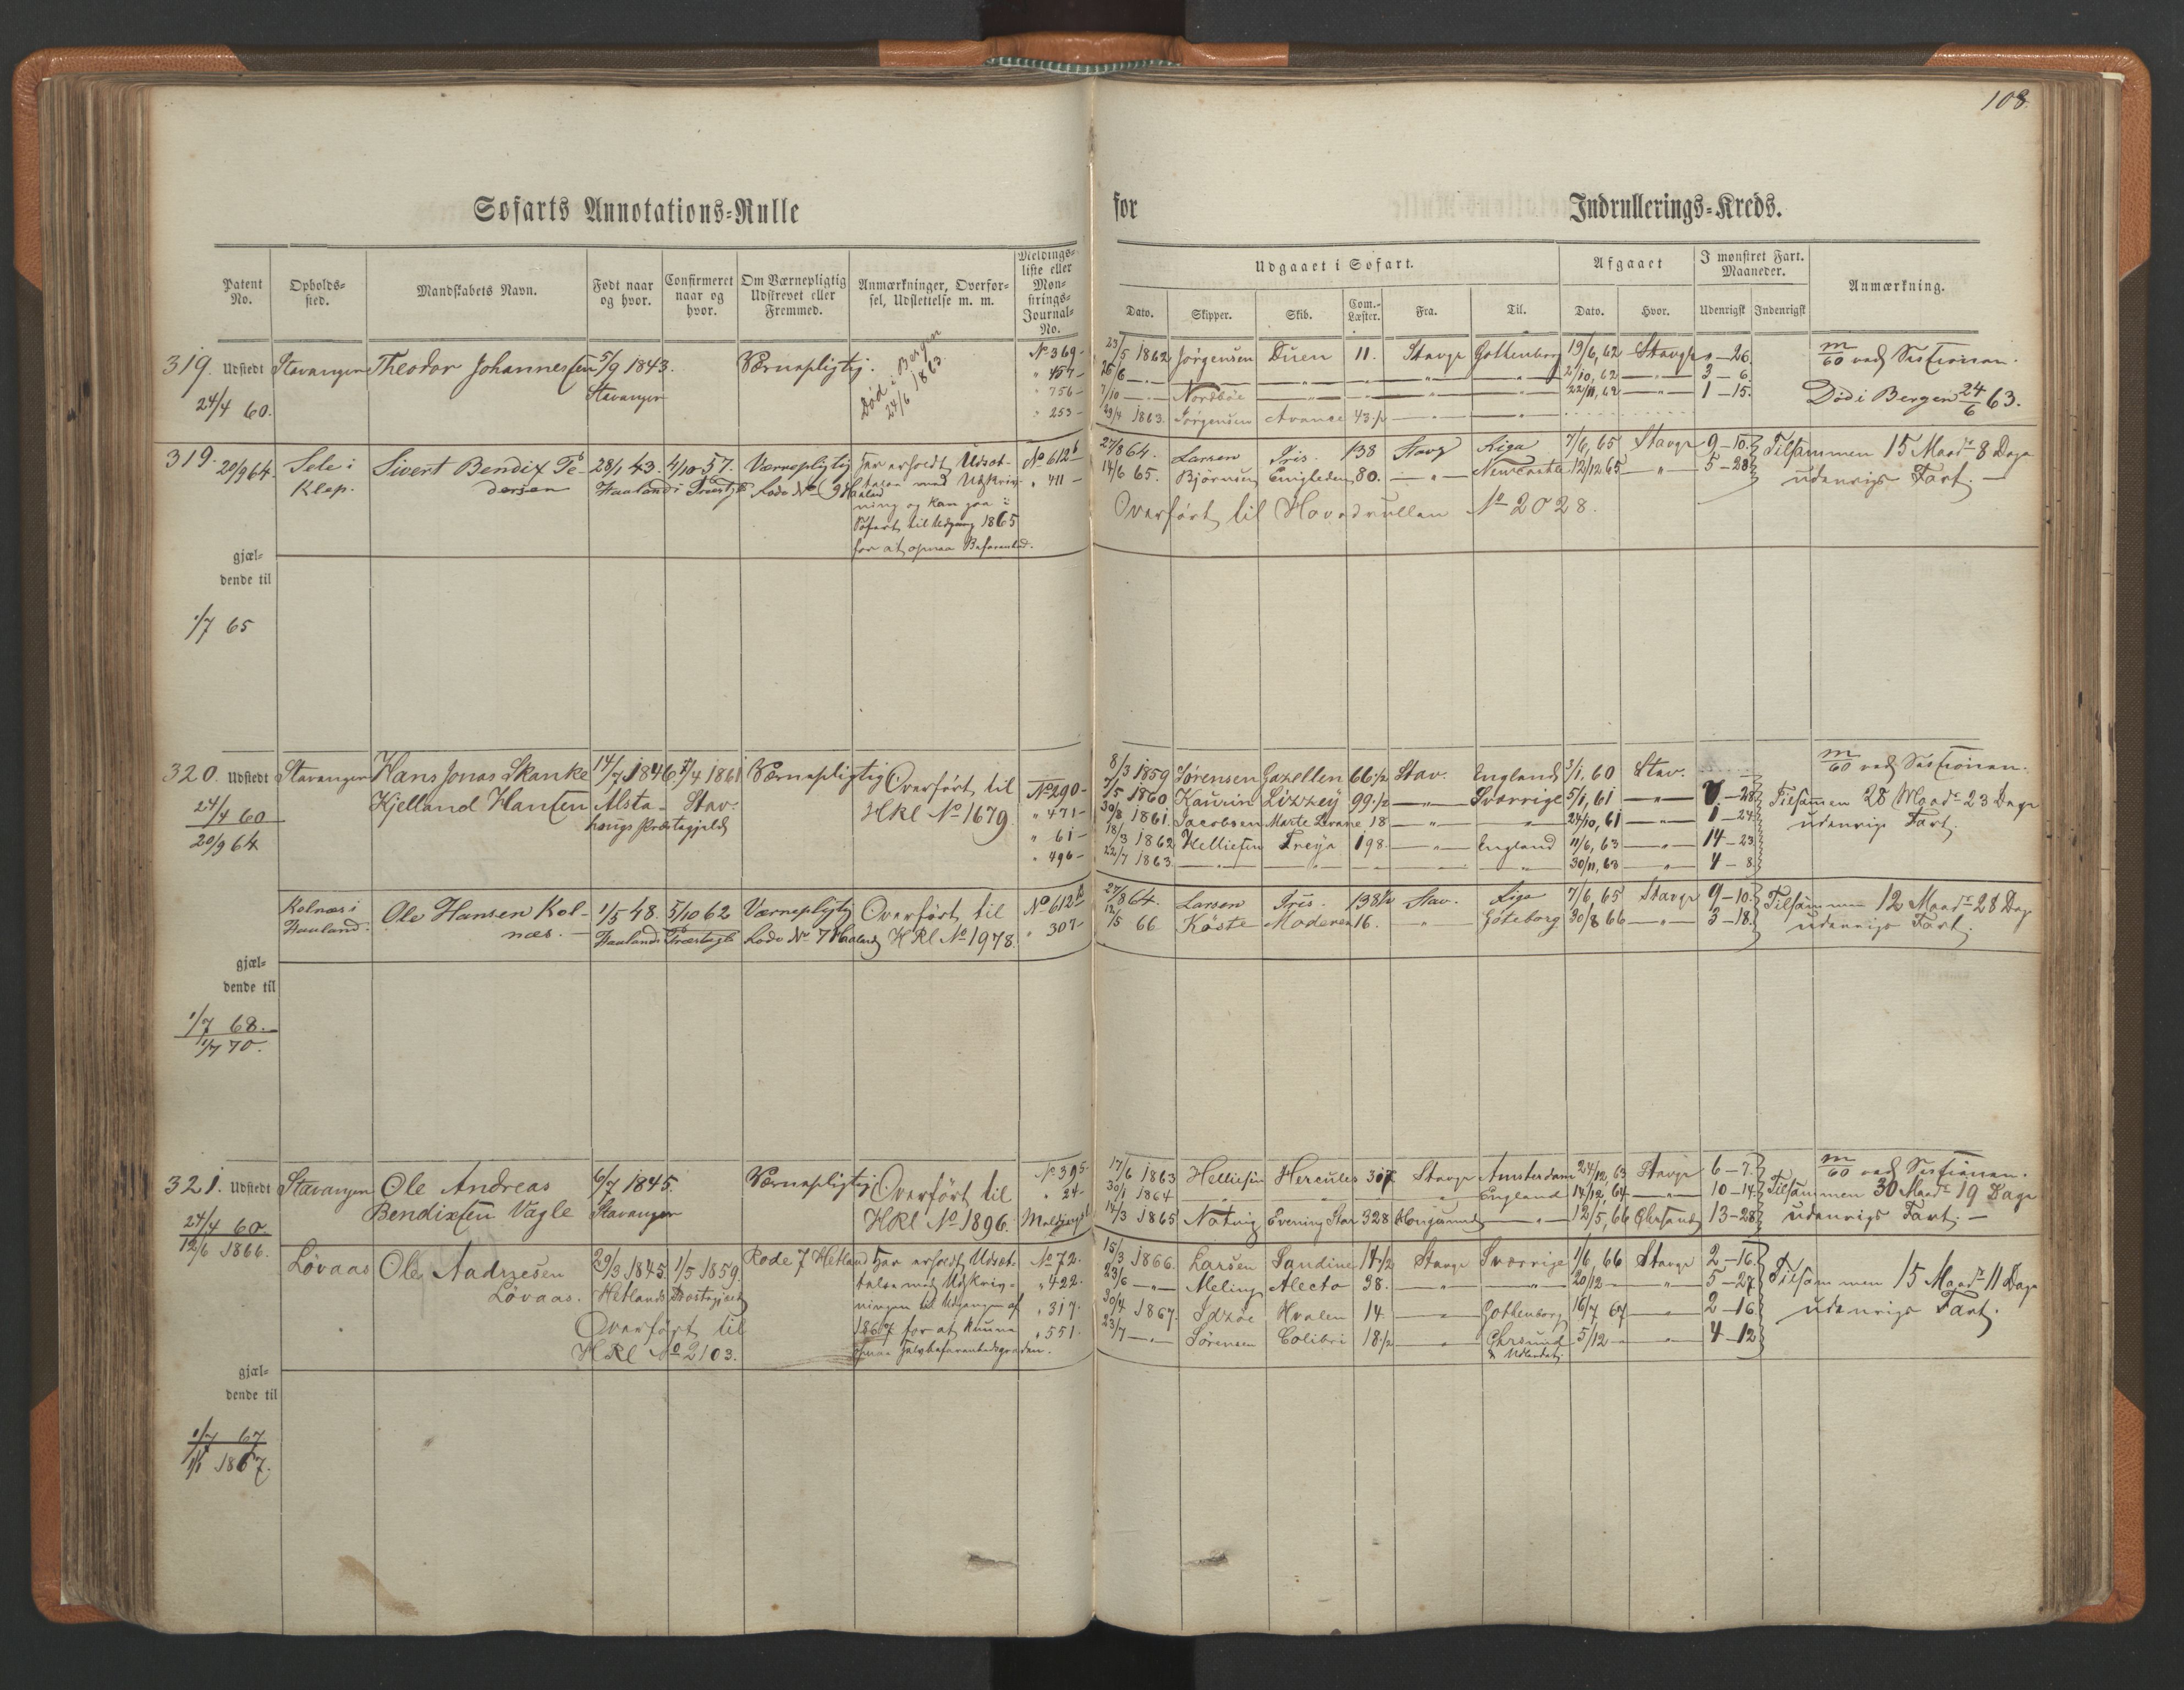 108.
Søfarts Annotations-Rulle for Indrullerings-Kreds.
Patent No. Opholds-sted. Mandskabets Navn. Født naar og hvor. Confirmeret naar og hvor. Om Værnepligtig Udskrevet eller Fremmed. Anmærkninger, Overførsel, Udslettelse m. m. Meldings-liste eller Mønstrings-Journal-No.
Udgaaet i Søfart. Afgaaet I mønstret Fart. Maaneder. Anmærkning.
Dato. Skipper. Skib. Com.-Læster. Fra. Til. Dato. Hvor. Udenrigsk Indenrigsk
319. Udstedt Stavanger Theodor Johannessen 5/9 1843. Værnepligtig. Død i Bergen 24/6 1863. No 369 - 23/5 1862 Jørgensen Duen 11. Stavgr Gottenborg 19/6, 62 Stavgr " - 26. m/60 ved Sessionen.
" 457 - 26/6 — " — 2/10, 62 — " — 3 - 6
24/4 60. Stavanger " 756 - 7/10 — " — Nordbøe — " — 22/11, 62 — " — 1 - 15. Død i Bergen 24/6 63.
" 253 - 29/4 1863. Jørgensen Avance 43 1/2 — " —
319. 20/9 64. Sele i Sivert Bendix Pe- 28/1 43. 4/10 57. Værnepligtig Har erholdt Udsæt- No 612 b 27/8 64. Larsen Iris. 138 Stavg Riga 7/6, 65 Stavgr 9 - 10. Tilsammen 15 Maadr 8 Dage
Klep. dersen Haaland i Præstgj. Lods No 9 Haaland telse med Udskriv- " 411 - 14/6 65. Bjørnsen Enigheden 80. — " — Newcastle 12/12 65 — " — 5 - 28 udenrigs Fart. —
ning og kan gaa i
Søfart til Udgang 1865
for at opnaa Befarenhed.
Overført til Hovedrullen No 2028.
gjæl-
dende til
1/7 65
320. Udstedt Stavanger Hans Jonas Skanke 14/7 1846. 7/4 1861 Værnepligtig Overført til No 290 - 8/3 1859 Sørensen Gazellen 66 1/2 Stav. England 3/1, 60 Stav. m/60 ved Sessionen.
Kjelland Hansen Alsta- Stav. Hkl No 1679. " 471 - 7/5 1860 Kaurin Lizzey 99 1/2 — " — Sverrige 5/1, 61 — " — 7 - 28 Tilsammen 28 Maadr 23 Dage
24/4 60 hougs Præstegjeld " 61 - 30/8 1861. Jacobsen Marte Svane 18 — " — 24/10, 61 — " — 1 - 24 udenrigs Fart.
20/9 64 18/3 1862 Helliesen Freya 198 — " — England 11/6, 63 — " — 14 - 23
" 496 - 22/7 1863 — " — 30/11, 63 — " — 4 - 8
Kolnæs i Ole Hansen Kol- 1/5 48. 5/10 62 Værnepligtig Overført til No 612 b 27/8 64. Larsen Iris. 138 1/2 Stav. Riga 7/6, 65 Stavgr 9 - 10. Tilsammen 12 Maadr 28 Dage
Haaland. næs. — Haalands Præstegj. Lods No 7 Haaland HRl No 1978. " 307 - 12/5 66 Køste Moderen 16. — " — Göteborg 30/8 66 — " — 3 - 18. udenrigs Fart.
gjæl-
dende til
1/7 68.
1/7 70.
321. Udstedt Stavanger Ole Andreas 6/7 1845. Værnepligtig Overført til No 395 - 17/6 1863 Helliesen Hercules 307 Stavgr Amsterdam 24/12, 63 Stavgr 6 - 7. m/60 ved Sessionen.
Bendixsen Vagle Stavanger HKl No 1896. " 24 - 30/1 1864 — " — England 14/12, 64 — " — 10 - 14. Tilsammen 30 Maadr 19 Dage
24/4 60. 14/3 1865 Natvig Evening Star 328 — " — 12/5, 66 Chrsand 13 - 28. udenrigs Fart. —
12/6 1866. Løvaas Ole Aadnesen 29/3 1845. 1/5 1859. Rode 7 Hetland Har erholdt Udsæt- No 72. 15/3 1866. Larsen Sandine 14 1/2 Stavgr Sverrige 1/6, 66 Stavgr 2 - 16. Tilsammen 15 Maadr 11 Dage
Løvaas. Hetlands Præstegjeld telse med Udskriv- " 422. 23/6 — " — Meling Alecto 38. — " — 20/12 — " — 5 - 27 udenrigs Fart.
Overført til ningen til Udgangen af " 317. 30/4 1867. Idsøe Hvalen 14. — " — Gothenborg 16/7 67 — " — 2 - 16
HRl No 2103. 1867 for at kunne " 551. 23/7 — " — Sørensen Colibri 18 1/2 — " — Chrsund 5/12 — " — 4 - 12
opnaa Halvbefarenhedsgraden. & Udlandet.
gjæl-
dende til
1/7 67
1/1 1867.